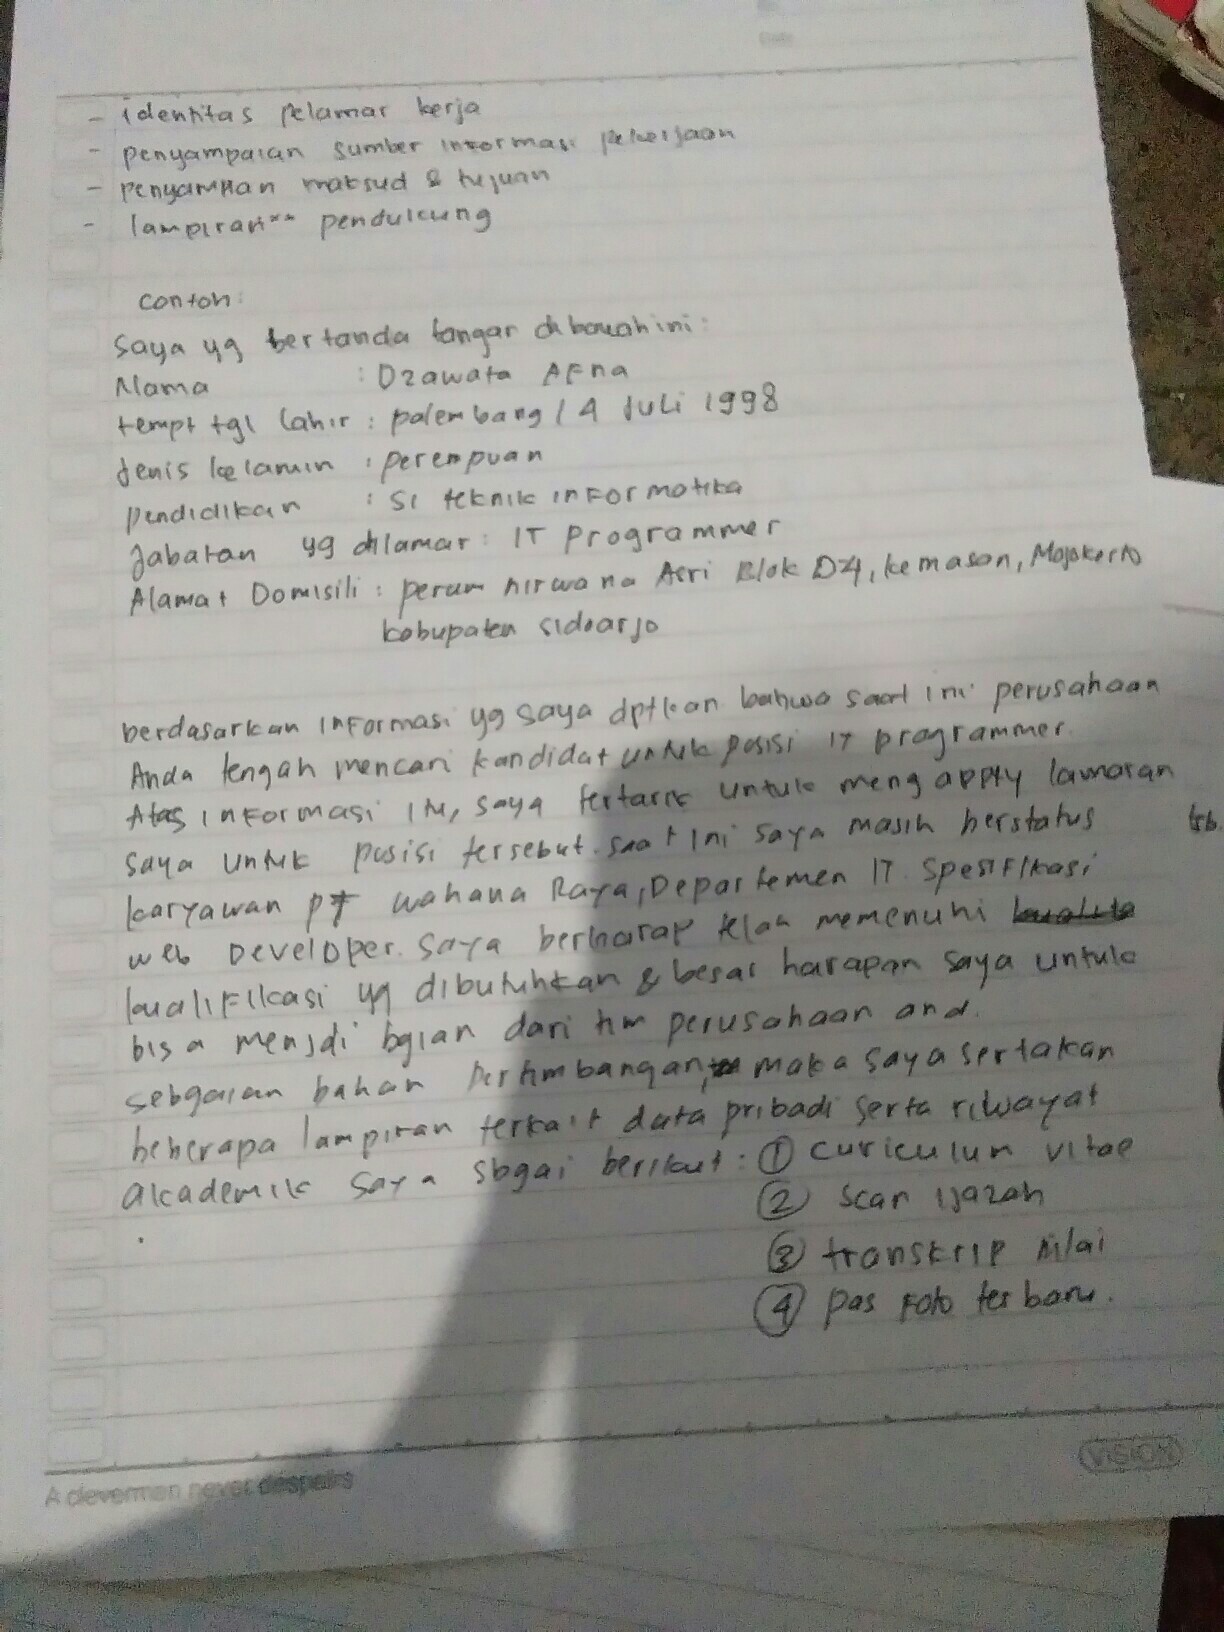 - identitas pelamar kerja
- penyampaian sumber informasi pekerjaan
- penyampian maksud & tujuan
- lampiran** pendukung
contoh:
Saya yg bertanda tangar dibawah ini:
Nama : Dzawata AFna
tempt tgl lahir : palembang / 4 Juli 1998
Jenis kelamin : perempuan
pendidikan : S1 teknik informatika
Jabatan yg dilamar : IT programmer
Alamat Domisili : perum nirwana Asri Blok D4, kemasan, Mojokerto
kabupaten sidoarjo
berdasarkan informasi yg saya dptkan bahwa saat ini perusahaan
Anda tengah mencari kandidat untuk posisi IT programmer.
Atas informasi ini, saya tertarik untuk meng apply lamaran
saya untuk posisi tersebut. saat ini saya masih berstatus
karyawan PT wahana Raya, Departemen IT. Spesifikasi
web Developer. saya berharap telah memenuhi
kualifikasi yg dibutuhkan & besar harapan saya untuk
bisa menjdi bgian dari tim perusahaan and.
sebgaian bahan pertimbangan, maka saya sertakan
beberapa lampiran terkait data pribadi serta riwayat
akademik saya sbgai berikut : ① curiculum vitae
② scan ijazah
③ transkrip nilai
④ pas foto terbaru.
A cleverman never despairs
VISION